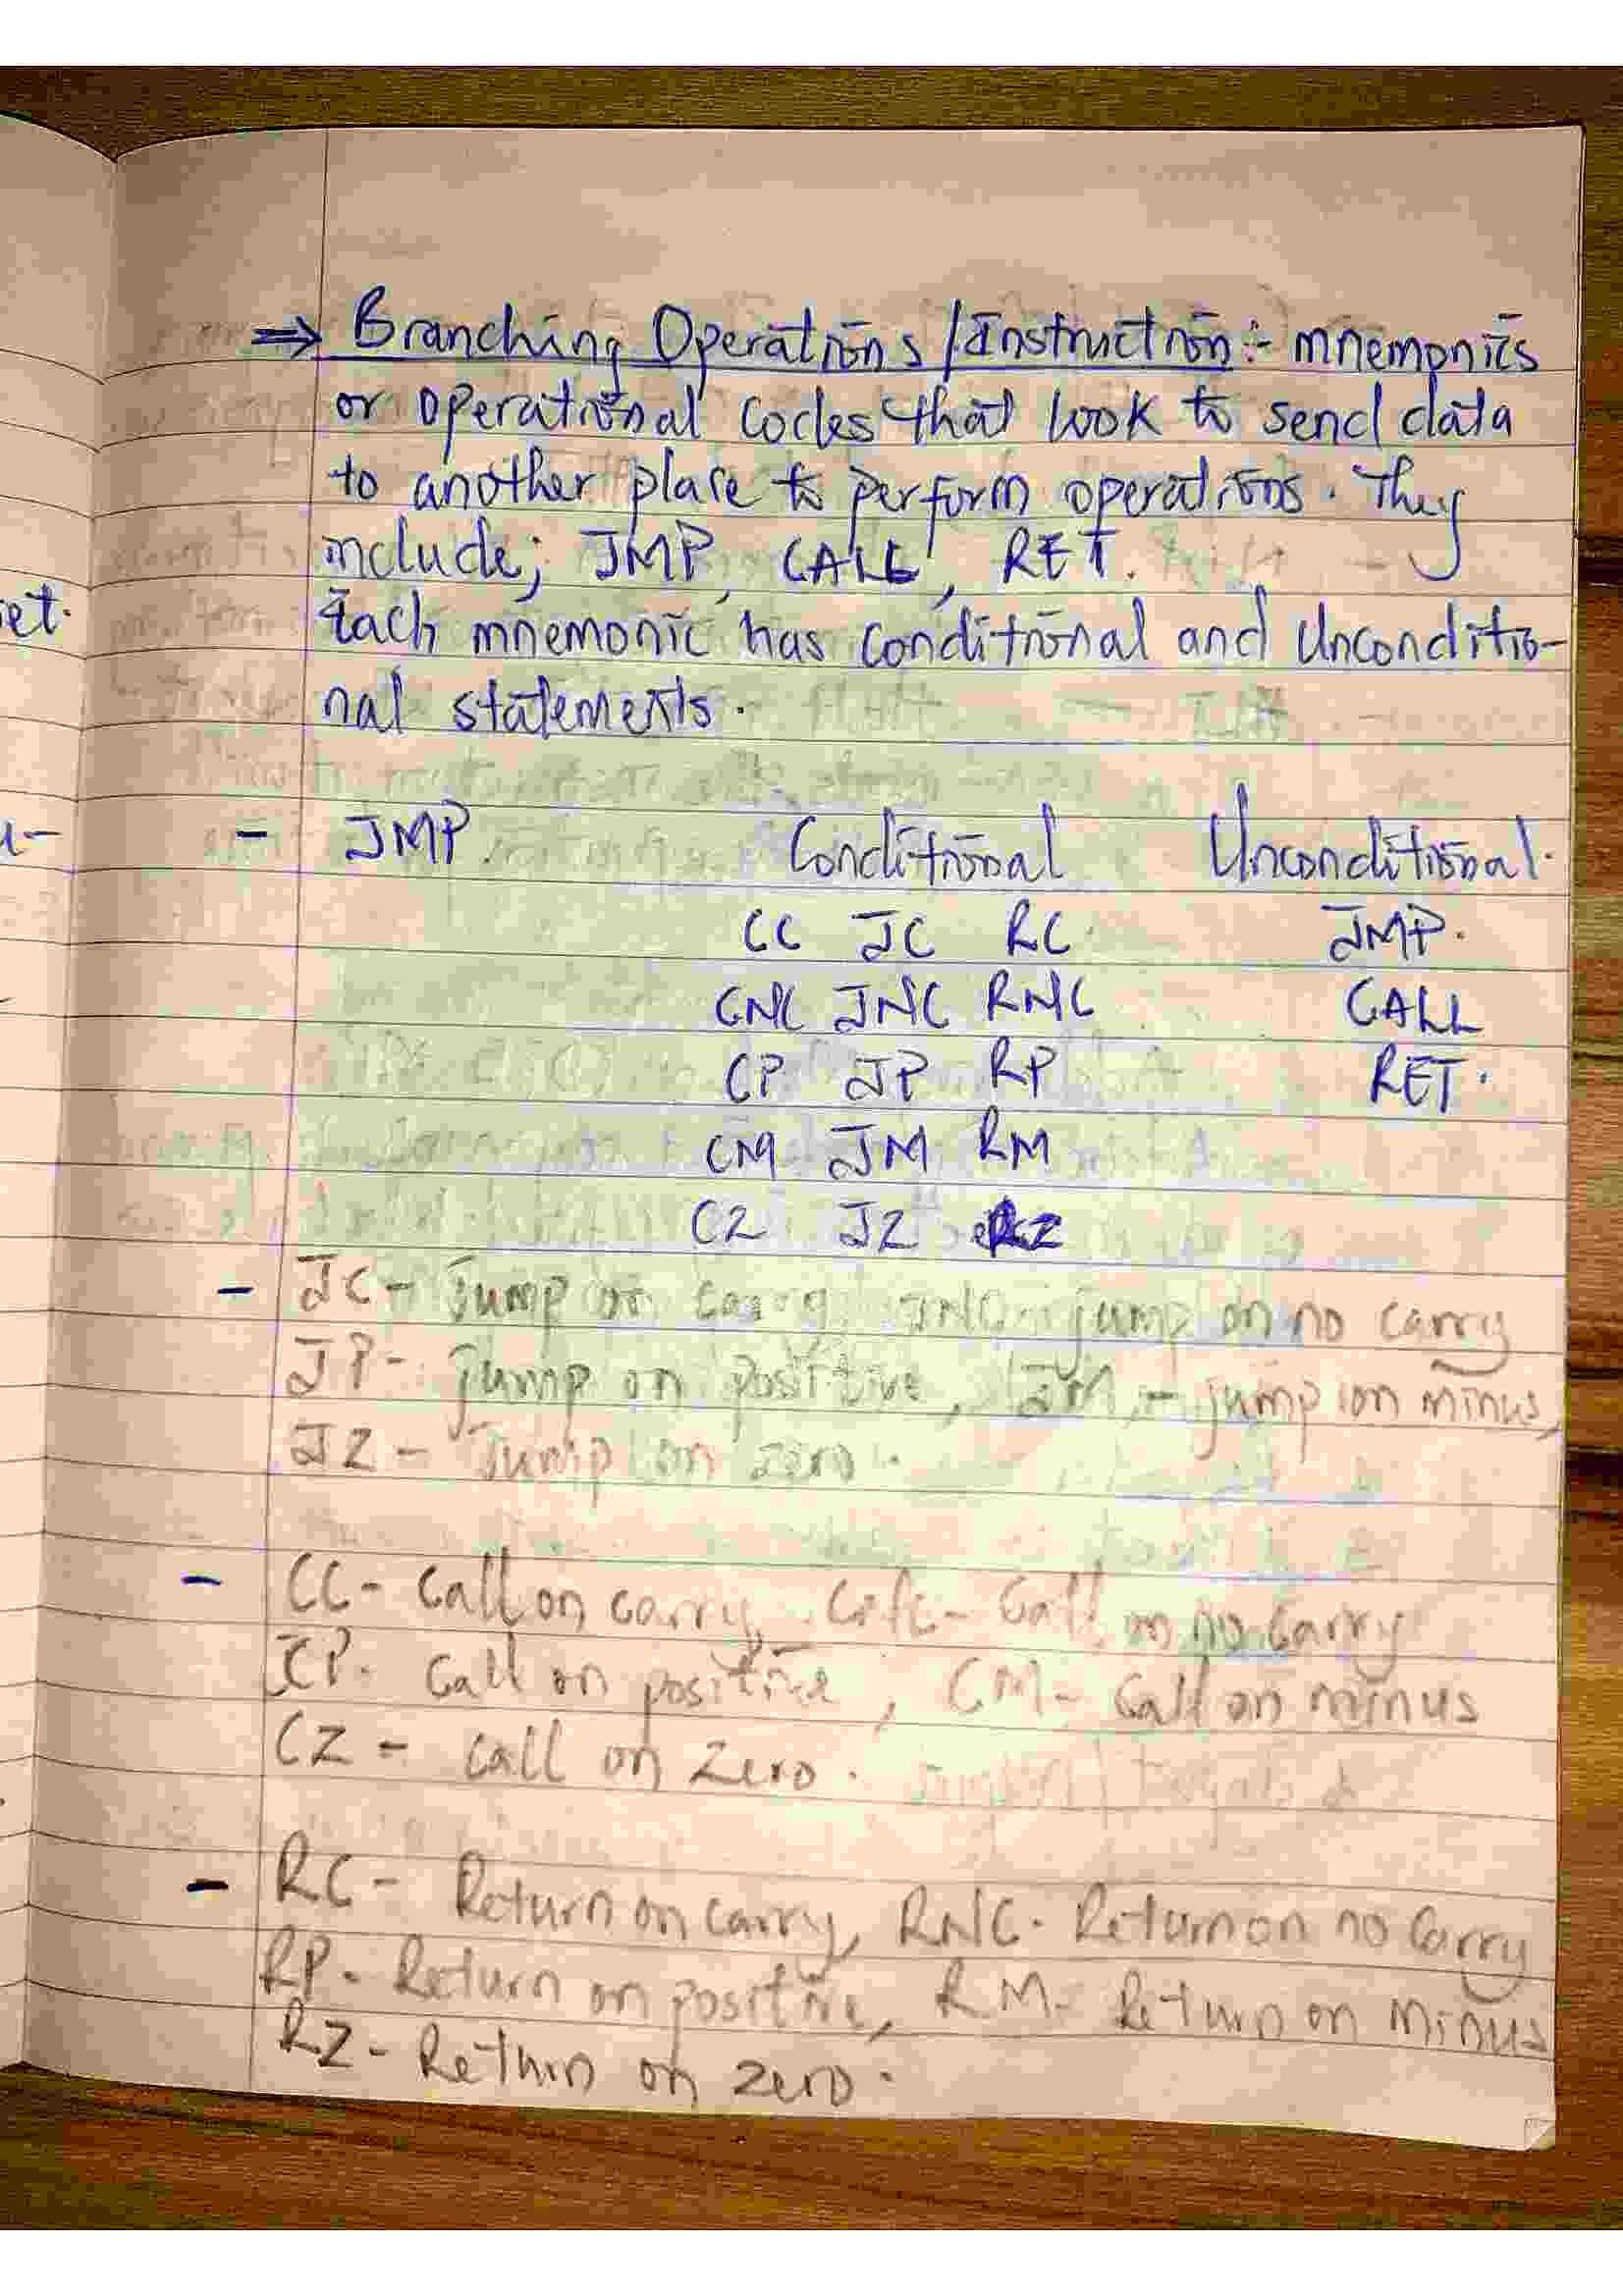 ⇒ Branching Operations / Instruction :- mnemonics
or operational codes that look to send data
to another place to perform operations. They
include; JMP, CALL, RET.
et. Each mnemonic has conditional and Unconditio-
nal statements.
- JMP. Conditional Unconditional.
CC JC RC JMP.
CNC JNC RNC CALL
CP JP RP RET.
CM JM RM
CZ JZ RZ
- JC - Jump on carry JNC - jump on no carry
JP - jump on positive, JM - jump on minus,
JZ - Jump on zero.
- CC - Call on carry, CNC - Call on no carry
CP - Call on positive, CM - Call on minus
CZ - call on zero.
- RC - Return on carry, RNC - Return on no carry
RP - Return on positive, RM - Return on minus
RZ - Return on zero.